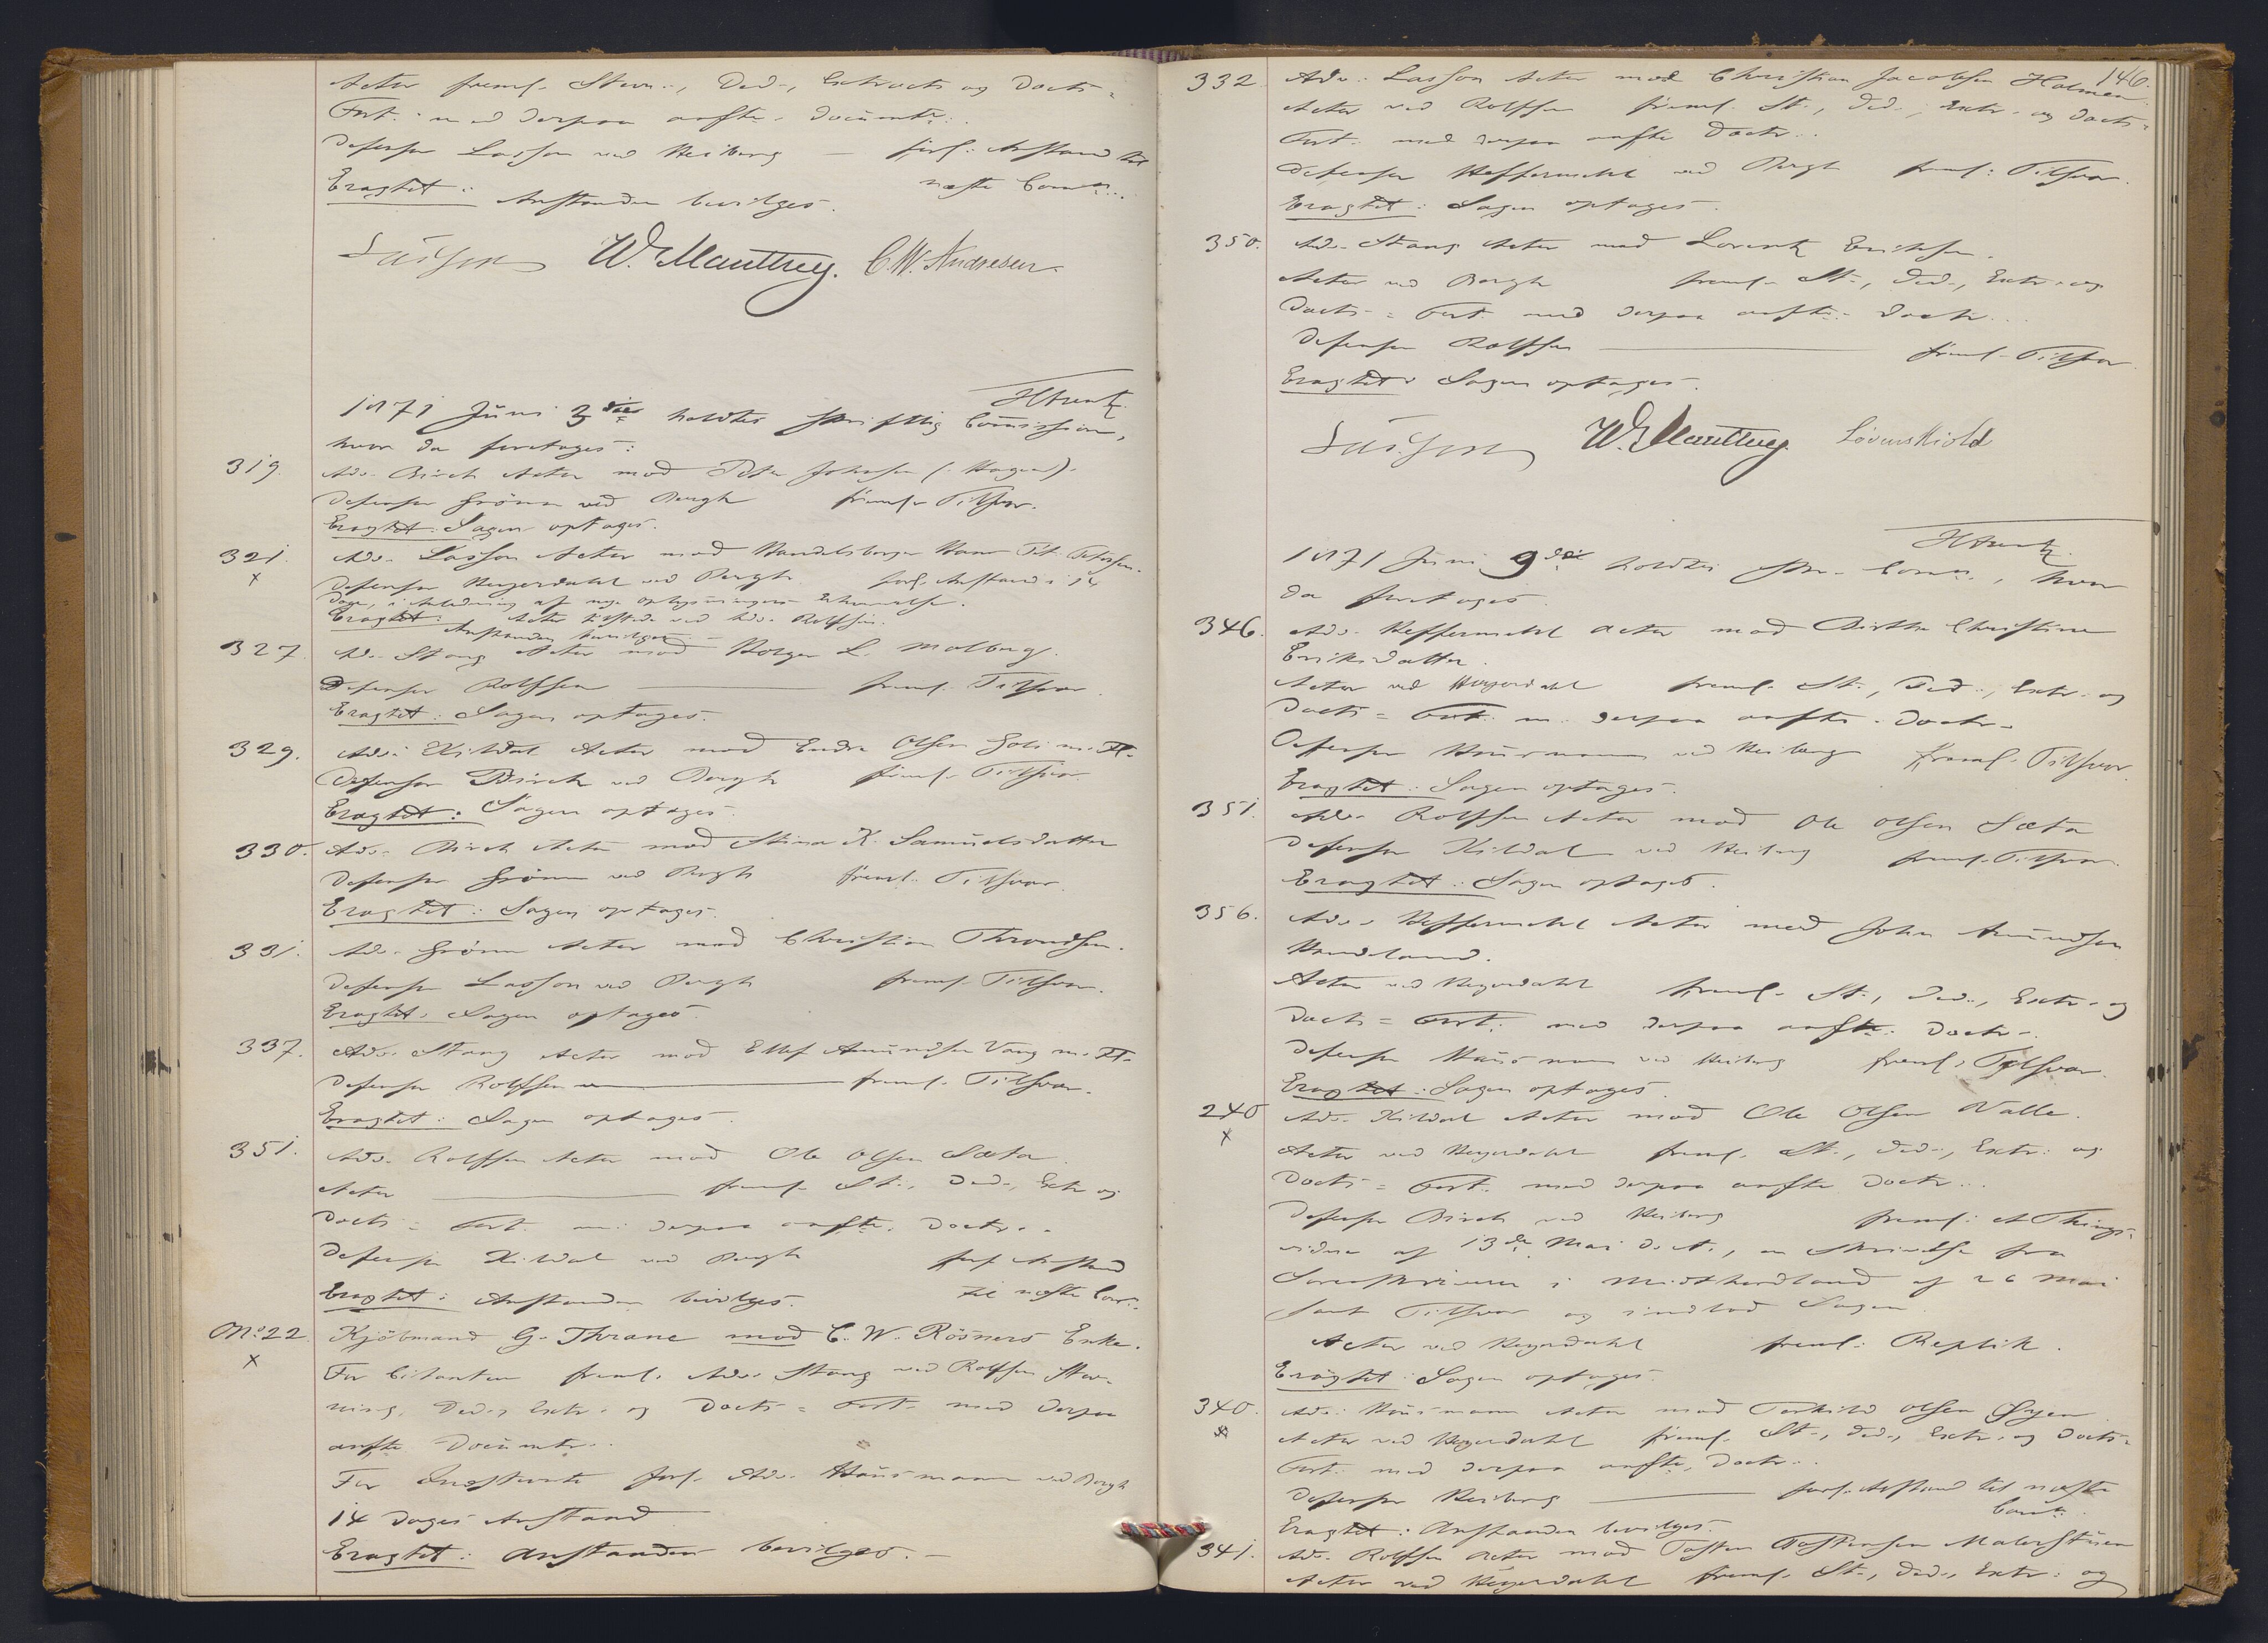 Actor freml. Stevn., Ded., Extracts og Docts=
Fort. med derpaa anførte Documtr.
Defensor Lasson ved Heiberg — forl. Anstand til
næste Comn.
Eragtet: Anstanden bevilges.
Lasson W. Manthey. C. W. Andresen.
1871 Juni 3die holdtes skriftlig Commission,
hvor da foretoges:
319. Adv. Birch Actor mod Peter Johnsen (Hagen).
Defensor Grönn ved Bergh freml. Tilsvar.
Eragtet: Sagen optages.
321. Adv. Lasson Actor mod Handelsborger Hans
x Defensor Heyerdahl ved Bergh forl. Anstand i 14
Dage, i Anledning af nye Oplysningers Erhvervelse.
Eragtet: Actor tilstede ved Adv. Rolfsen.
Anstanden bevilges.
327. Adv. Stang Actor mod Holger L. Malberg.
Defensor Rolfsen — freml. Tilsvar.
Eragtet: Sagen optages.
329. Adv. Kildal Actor mod Endre Olsen Goli m. Fl.
Defensor Birch ved Bergh freml. Tilsvar
Eragtet: Sagen optages.
330. Adv. Birch Actor mod Stina K. Samuelsdatter
Defensor Grönn ved Bergh freml. Tilsvar.
Eragtet: Sagen optages.
331. Adv. Grönn Actor mod Christian Throndsen.
Defensor Lasson ved Bergh freml. Tilsvar.
Eragtet: Sagen optages.
337. Adv. Stang Actor mod Ellef Amundsen Vang m. Fl.
Defensor Rolfsen — freml. Tilsvar.
Eragtet: Sagen optages.
351. Adv. Rolfsen Actor mod Ole Olsen Sæta
Actor — freml. St., Ded., Extr. og
Docts = Fort. m. derpaa anførte Doctr.
Defensor Kildal ved Bergh forl. Anstand
til næste Com.
Eragtet: Anstanden bevilges.
No 22. Kjöbmand G. Thrane mod C. W. Rösners Enke.
x For Citanten freml. Adv. Stang ved Rolfsen Stev-
ning, Ded., Extr. og Docts = Fort. med derpaa
anførte Documtr.
For Indstevnte forl. Adv. Hausmann ved Bergh
14 Dages Anstand
Eragtet: Anstanden bevilges. —
146.
332 Adv. Lasson Actor mod Christian Jacobsen Holmen.
Actor ved Rolfsen freml. St., Ded., Extr. og Docts=
Fort. med derpaa anførte Doctr.
Defensor Heffermehl ved Bergh freml. Tilsvar.
Eragtet: Sagen optages.
350. Adv. Stang Actor mod Lorentz Eriksen.
Actor ved Bergh freml. St., Ded., Extr. og
Docts = Fort. med derpaa anførte Doctr.
Defensor Rolfsen — freml. Tilsvar
Eragtet: Sagen optages.
Lasson W. Manthey. Løvenskiold
1871 Juni 9de holdtes skr. Comn., hvor
da foretoges
346. Adv. Heffermehl Actor mod Birthe Christine
Eriksdatter.
Actor ved Heyerdahl freml. St., Ded., Extr. og
Docts = Fort. m. derpaa anførte Doctr.
Defensor Hausmann ved Heiberg freml. Tilsvar.
Eragtet: Sagen optages.
351. Adv. Rolfsen Actor mod Ole Olsen Sæta
Defensor Kildal ved Heiberg freml. Tilsvar.
Eragtet: Sagen optages.
356. Adv. Heffermehl Actor mod John Amundsen
Actor ved Heyerdahl freml. St., Ded., Extr. og
Docts = Fort. med derpaa anførte Doctr.
Defensor Hausmann ved Heiberg freml. Tilsvar.
Eragtet: Sagen optages.
240 Adv. Kildal Actor mod Ole Olsen Valle.
x Actor ved Heyerdahl freml. St., Ded., Extr. og
Docts = Fort. med derpaa anførte Doctr.
Defensor Birch ved Heiberg freml. et Things=
vidne af 13de Mai d. A., en Skrivelse fra
Sorenskriveren i Midthordland af 26 Mai
samt Tilsvar og indlod Sagen.
Actor ved Heyerdahl freml. Replik.
Eragtet: Sagen optages.
340. Adv. Hausmann Actor mod Torkild Olsen Öyen
x Actor ved Heyerdahl freml. St., Ded., Extr. og Docts=
Fort. med derpaa anførte Doctr.
Defensor Heiberg — forl. Anstand til næste
Com.
Eragtet: Anstanden bevilges.
341. Adv. Rolfsen Actor mod Tosten Tostensen Malerstuen
Actor ved Heyerdahl freml. St., Ded., Extr. og